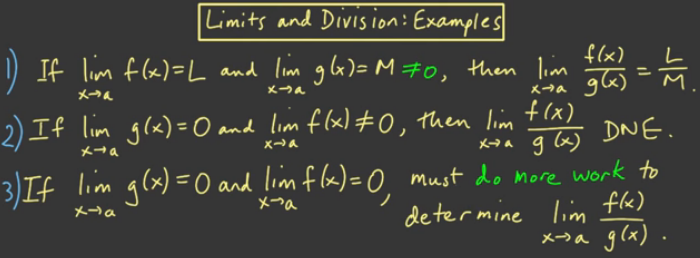 Limits and Division: Examples
1) If lim x→a f(x)=L and lim x→a g(x)=M ≠0, then lim x→a f(x)/g(x) = L/M.
2) If lim x→a g(x)=0 and lim x→a f(x)≠0, then lim x→a f(x)/g(x) DNE.
3) If lim x→a g(x)=0 and lim x→a f(x)=0, must do more work to
determine lim x→a f(x)/g(x).